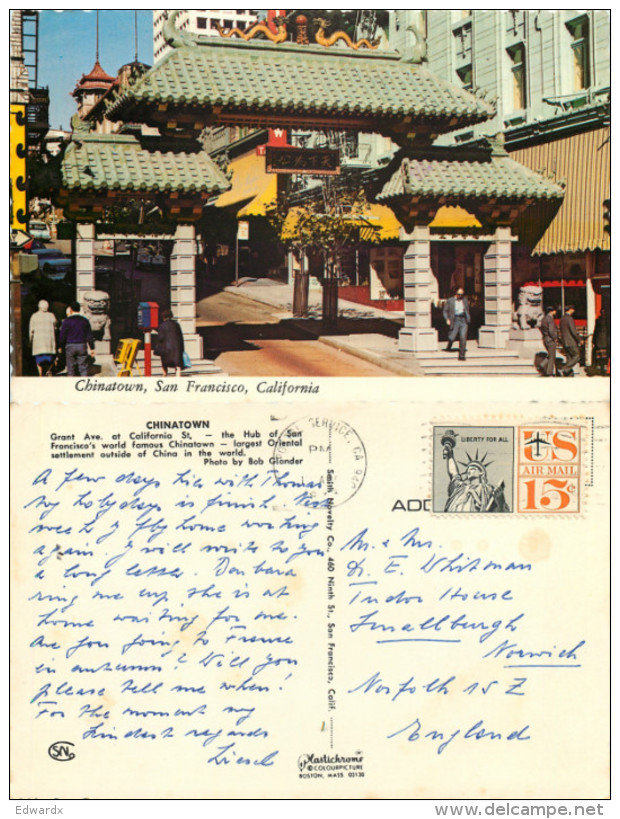 天下為公
Chinatown, San Francisco, California
CHINATOWN
Grant Ave. at California St, — the Hub of San
Francisco's world famous Chinatown — largest Oriental
settlement outside of China in the world.
Photo by Bob Glander
A few days his with Thomas
my holydays is finish. Next
week I fly home working
again. I will write to you
a long letter. Barbara
ring me up she is at
home waiting for me.
Are you going to France
in autumn? Will you
please tell me when!
For the moment my
kindest regards
Liesel
SNCo
Smith Novelty Co., 460 Ninth St., San Francisco, Calif.
SERVICE, CA 940
PM
LIBERTY FOR ALL
US
AIR MAIL
15¢
ADD
Mr. & Mrs.
Dr. E. Whitman
Tudor House
Smallburgh
Norwich
Norfolk 15 Z
England
Plastichrome
© COLOURPICTURE
BOSTON, MASS. 02130
Edwardx
www.delcampe.net